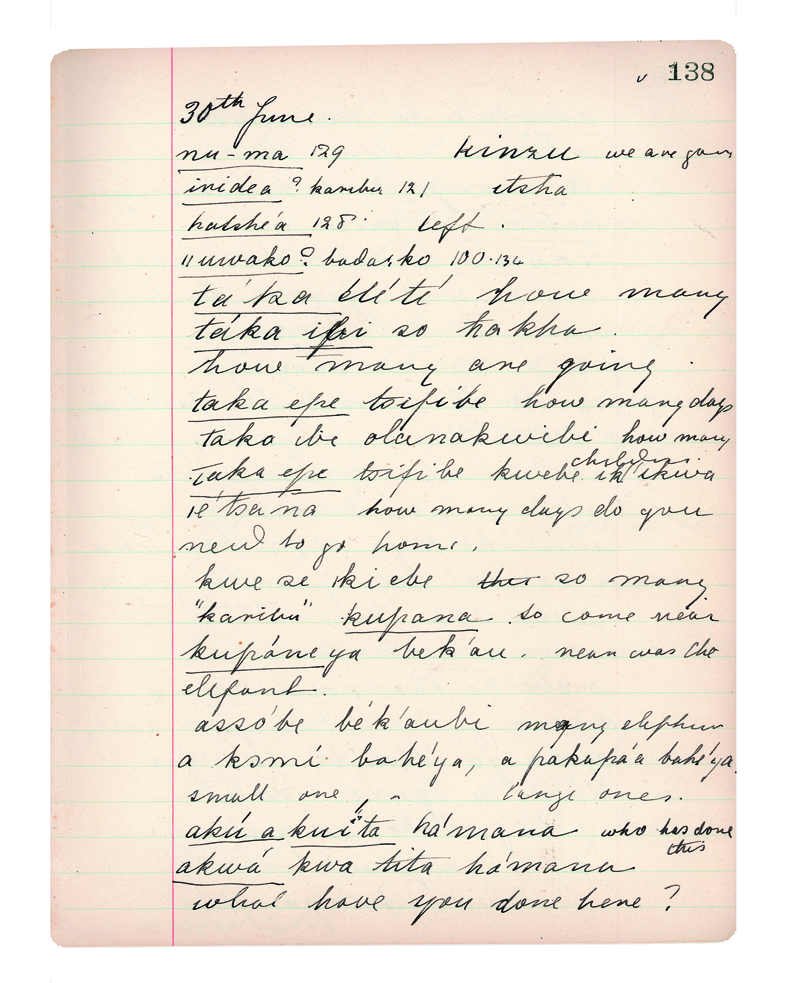 v 138
30th June.
nu-ma 129 kinzu we are going
inidea? karibu 121 itsha
hatshe'a 128. left.
"uwako? badasko 100.134
tá'ka élété how many
táka ifi so hakha.
how many are going.
taka epe tsifibe how many days
taka ibe olanakwibi how many
children.
Taka epe tsifibe kwebe ikwa
ié tsa'na how many days do you
need to go home.
kwe se ikiebe so many
"karibu" kupana so come near
kupáneya bek'au. near was the
elefant.
assóbe bék'aubi many elephan
a ksmí bahé'ya, a pakapáa bahé'ya
small one, " large ones.
akú a kuí'ta há'mana who has done
this
akwá kwa tita há'mana
what have you done here?